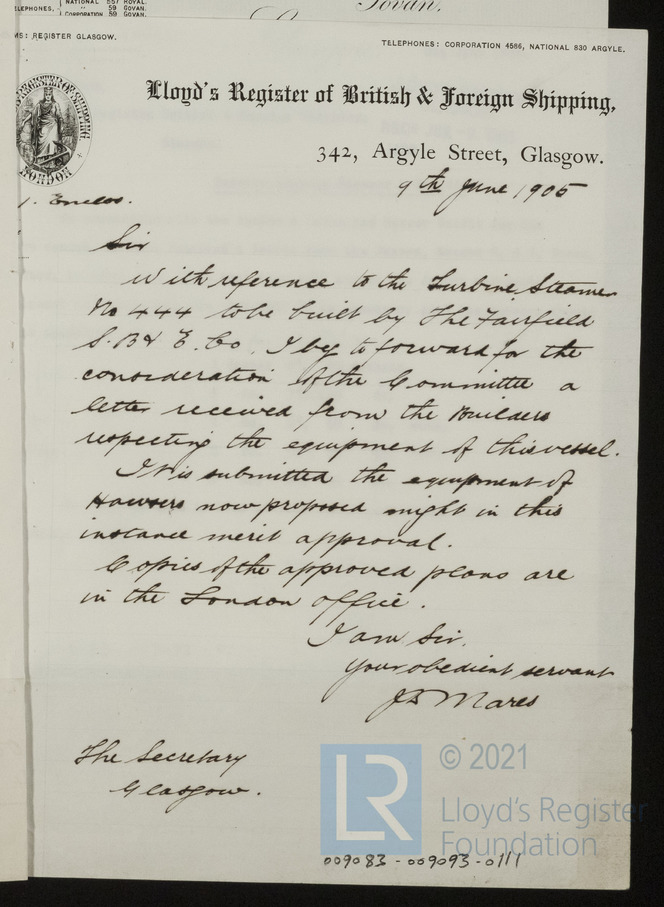 NATIONAL 857 ROYAL.
ELEPHONES, " 59 GOVAN.
CORPORATION 59 GOVAN.
Govan.
MS: REGISTER GLASGOW.
TELEPHONES: CORPORATION 4586, NATIONAL 830 ARGYLE.
Lloyd's Register of British & Foreign Shipping,
342, Argyle Street, Glasgow.
REGISTER OF SHIPPING
LONDON
9th June 1905
1. Enclos.
Sir
With reference to the Turbine Steamer
No 444 to be built by The Fairfield
S. B & E. Co. I beg to forward for the
consideration of the Committee a
letter received from the Builders
respecting the equipment of this vessel.
It is submitted the equipment of
Hawsers now proposed might in this
instance merit approval.
Copies of the approved plans are
in the London office.
I am Sir,
Your obedient servant
JB Mares
The Secretary
Glasgow.
LR
© 2021
Lloyd's Register
Foundation
009083-009093-0111